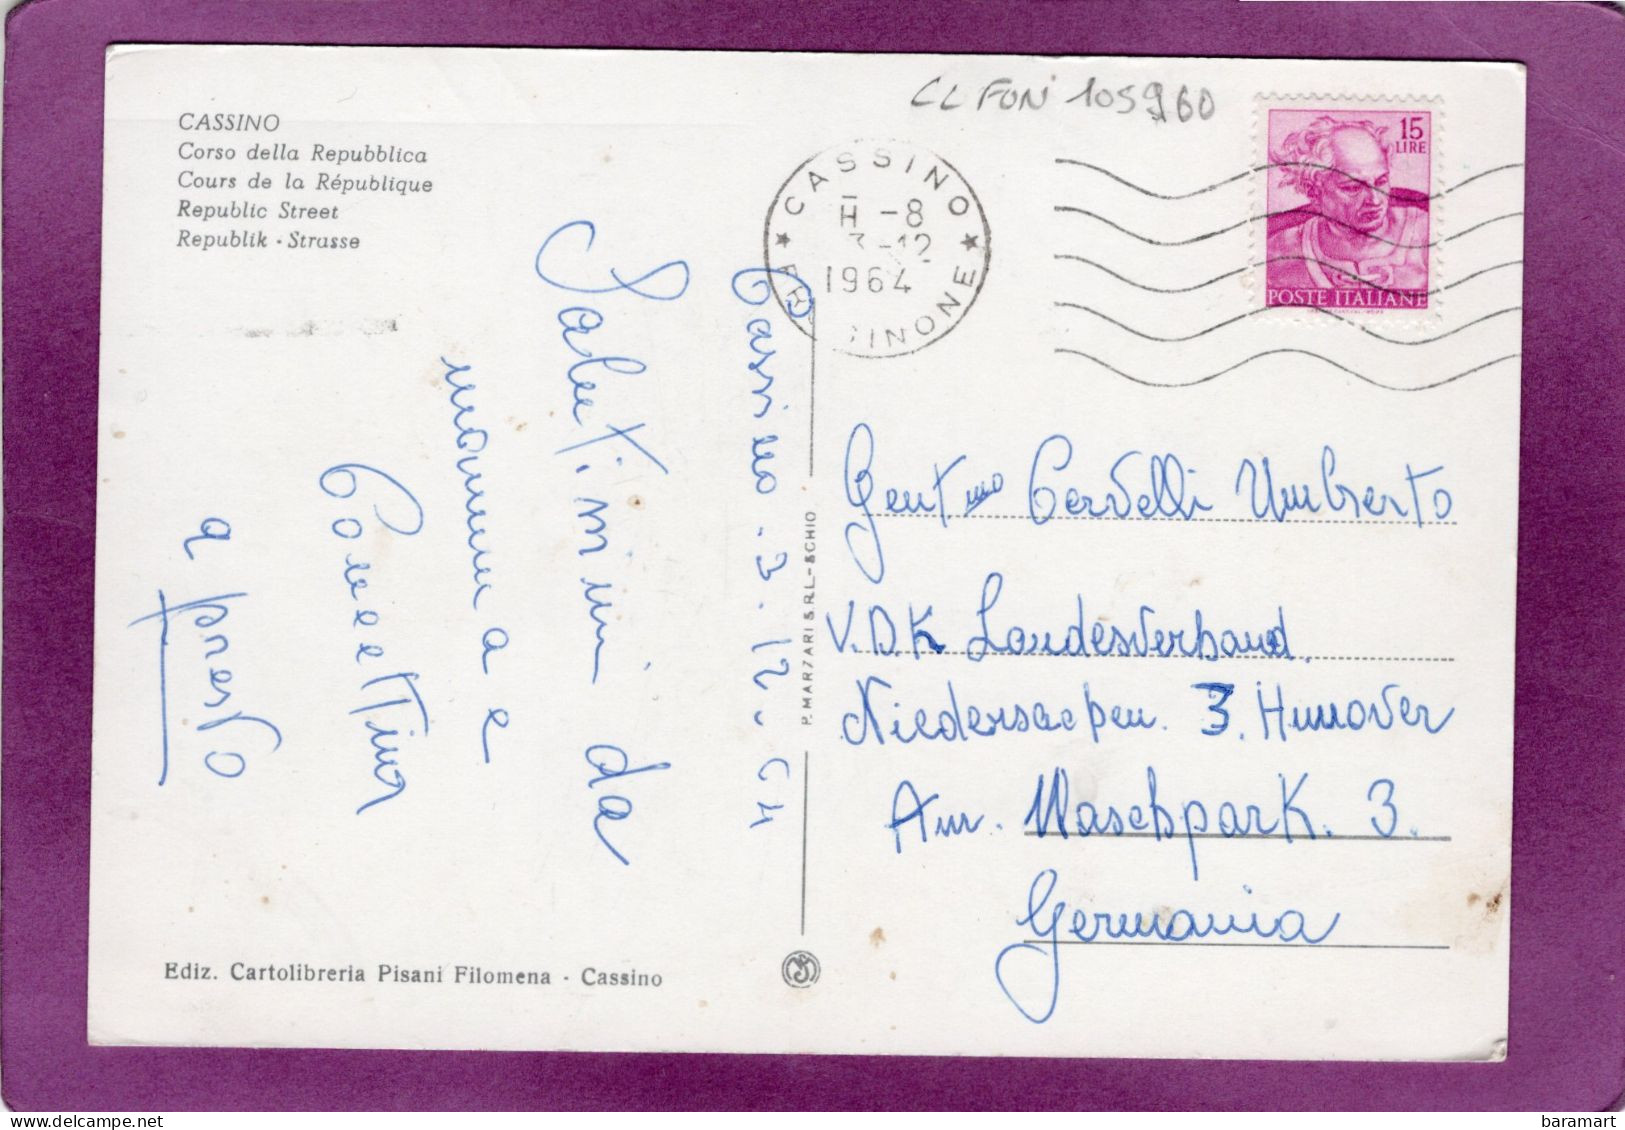 CL FON 105960
15
LIRE
POSTE ITALIANE
CASSINO
H -8
3-12
1964
CASSINO
Corso della Repubblica
Cours de la République
Republic Street
Republik - Strasse
Cassino . 3 . 12 . 64
Saluti. mi da
mamma e
a presto
P. MARZARI S.R.L. - SCHIO
Gentmo Cervelli Umberto
V.D.K Landesverband
Niedersacpen. 3. Hnnover
Am. Maschpark. 3.
Germania
Ediz. Cartolibreria Pisani Filomena - Cassino
delcampe.net
baramart